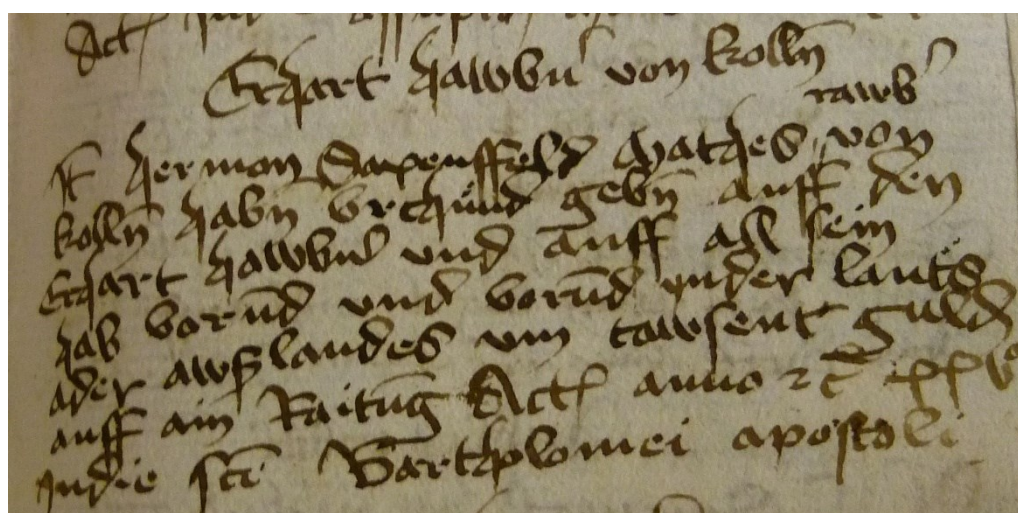 Act
Erhart hawbn von kolln
rawb
It herman Saxenffeld Mathes von
kolln habn vrchund gebn auff den
Erhart hawbn vnd auff all sein
hab vorund vnd vorund ynder lants
ader awslandes vm tawsent guldn
auff ain Raitung Act anno
Indie sci Bartholomei apostoli